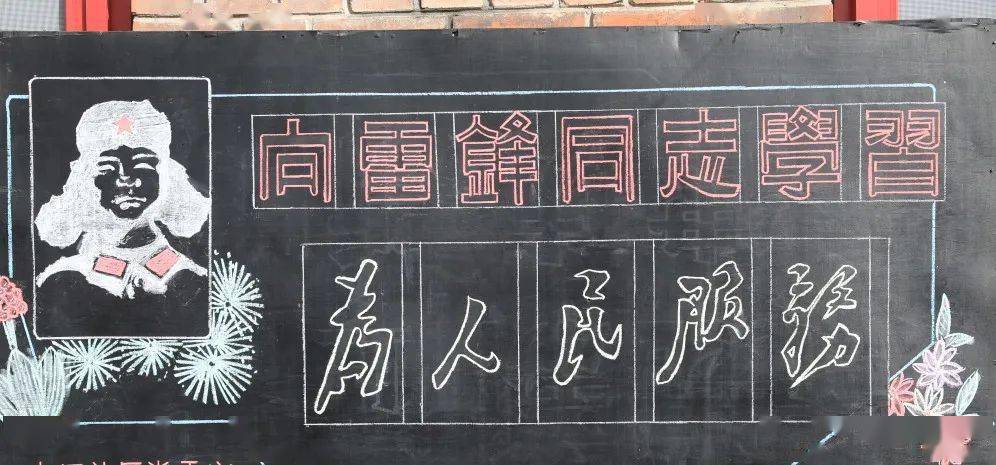 向雷鋒同志學習
为人民服務